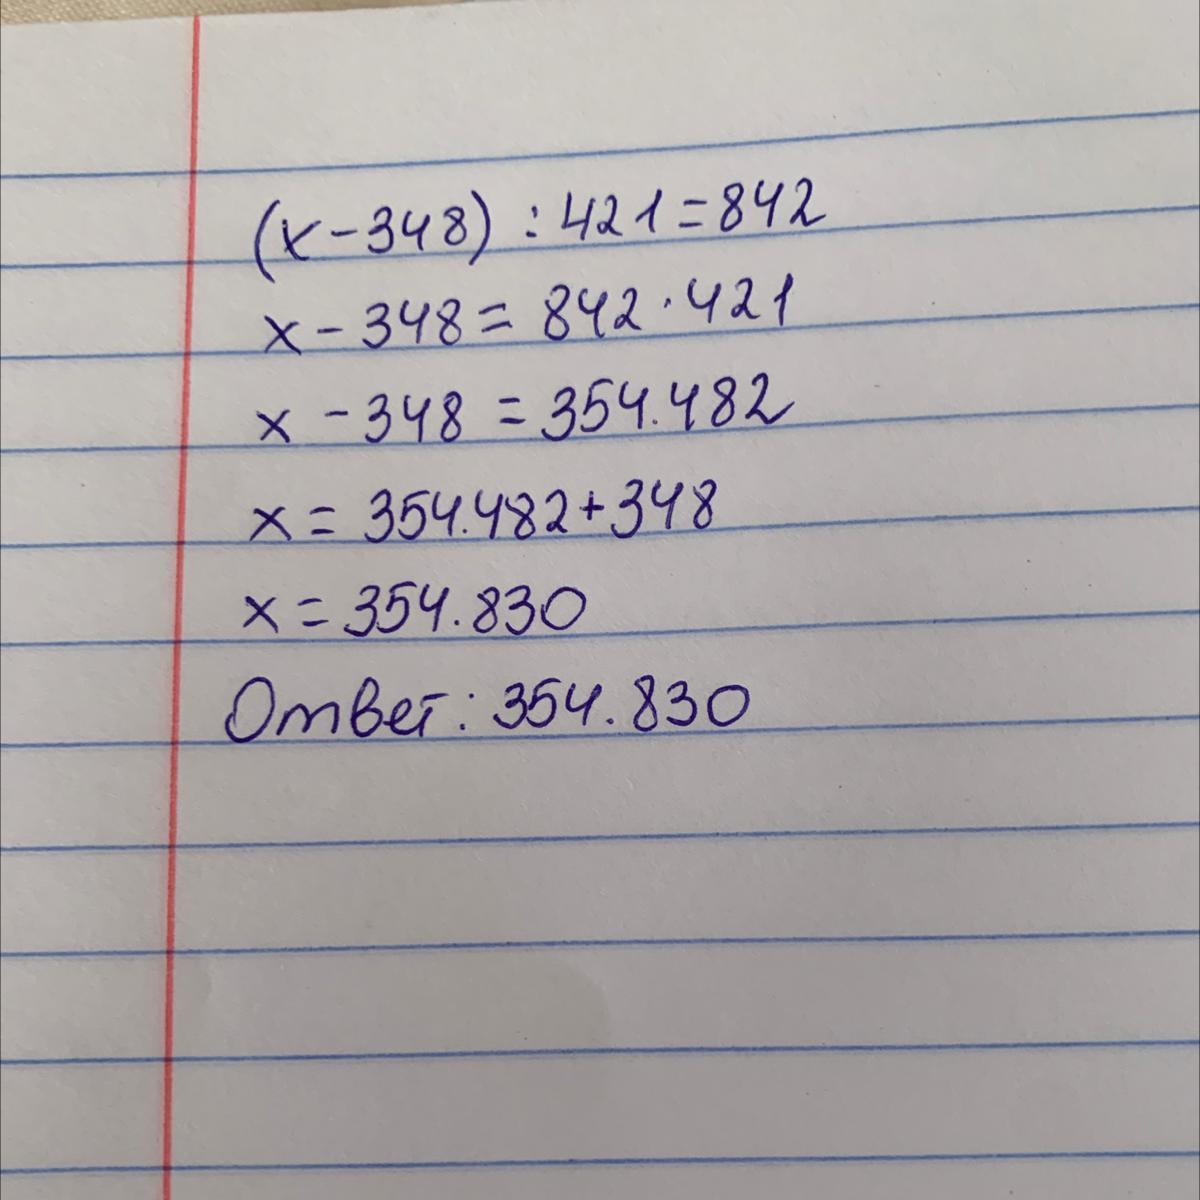 (x-348) : 421=842
x-348= 842·421
x -348 =354.482
x= 354.482+348
x=354.830
Ответ: 354.830